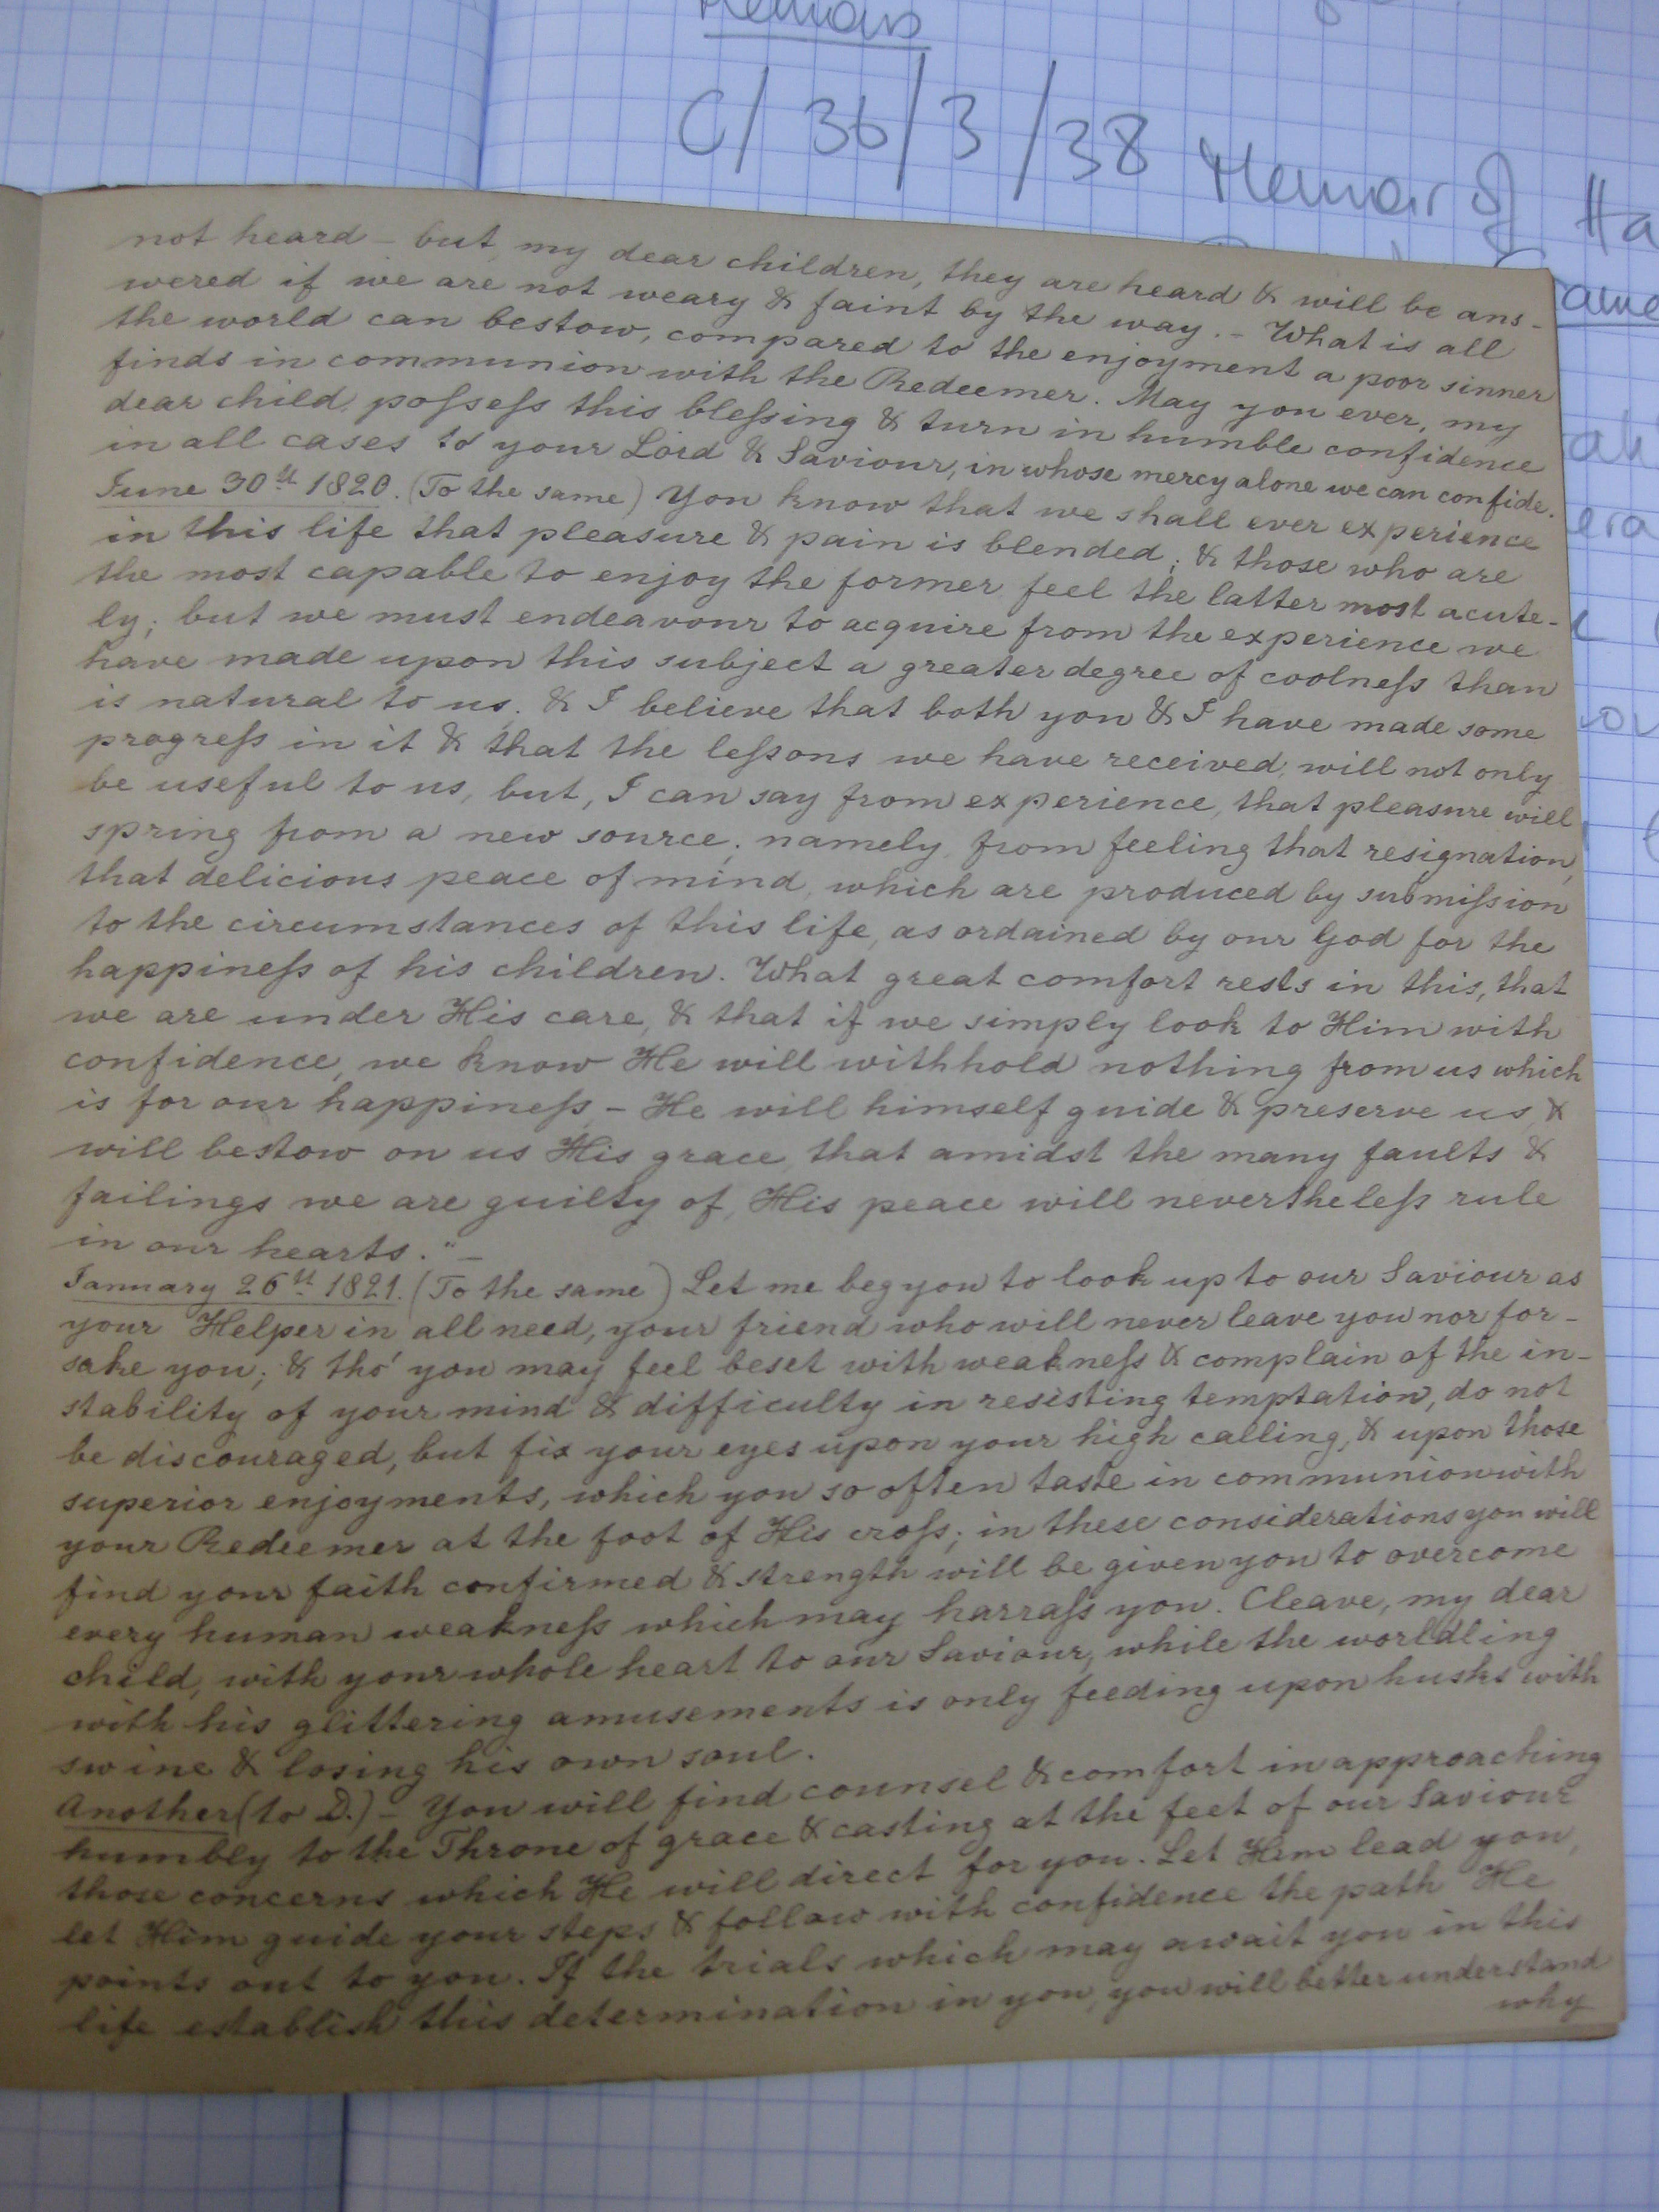 Memoirs
C/36/3/38 Memoir of Ha
not heard – but, my dear children, they are heard & will be ans-
wered if we are not weary & faint by the way. – What is all
the world can bestow, compared to the enjoyment a poor sinner
finds in communion with the Redeemer. May you ever, my
dear child, poſseſs this bleſsing & turn in humble confidence
in all cases to your Lord & Saviour, in whose mercy alone we can confide.
June 30th 1820. (To the same) You know that we shall ever experience
in this life that pleasure & pain is blended; & those who are
the most capable to enjoy the former feel the latter most acute-
ly; but we must endeavour to acquire from the experience we
have made upon this subject a greater degree of coolneſs than
is natural to us, & I believe that both you & I have made some
progreſs in it & that the leſsons we have received, will not only
be useful to us, but, I can say from experience, that pleasure will
spring from a new source; namely, from feeling that resignation,
that delicious peace of mind, which are produced by submiſsion
to the circumstances of this life, as ordained by our God for the
happineſs of his children. What great comfort rests in this, that
we are under His care, & that if we simply look to Him with
confidence, we know He will withhold nothing from us which
is for our happineſs – He will himself guide & preserve us, &
will bestow on us His grace, that amidst the many faults &
failings we are guilty of, His peace will nevertheleſs rule
in our hearts." –
January 26th 1821. (To the same) Let me beg you to look up to our Saviour as
your Helper in all need, your friend who will never leave you nor for-
sake you; & tho' you may feel beset with weakneſs & complain of the in-
stability of your mind & difficulty in resisting temptation, do not
be discouraged, but fix your eyes upon your high calling, & upon those
superior enjoyments, which you so often taste in communion with
your Redeemer at the foot of His croſs; in these considerations you will
find your faith confirmed & strength will be given you to overcome
every human weakneſs which may harraſs you. Cleave, my dear
child, with your whole heart to our Saviour, while the worldling
with his glittering amusements is only feeding upon husks with
swine & losing his own soul.
Another (to D.) – You will find counsel & comfort in approaching
humbly to the Throne of grace & casting at the feet of our Saviour
those concerns which He will direct for you. Let Him lead you,
let Him guide your steps & follow with confidence the path He
points out to you. If the trials which may await you in this
life establish this determination in you, you will better understand
why